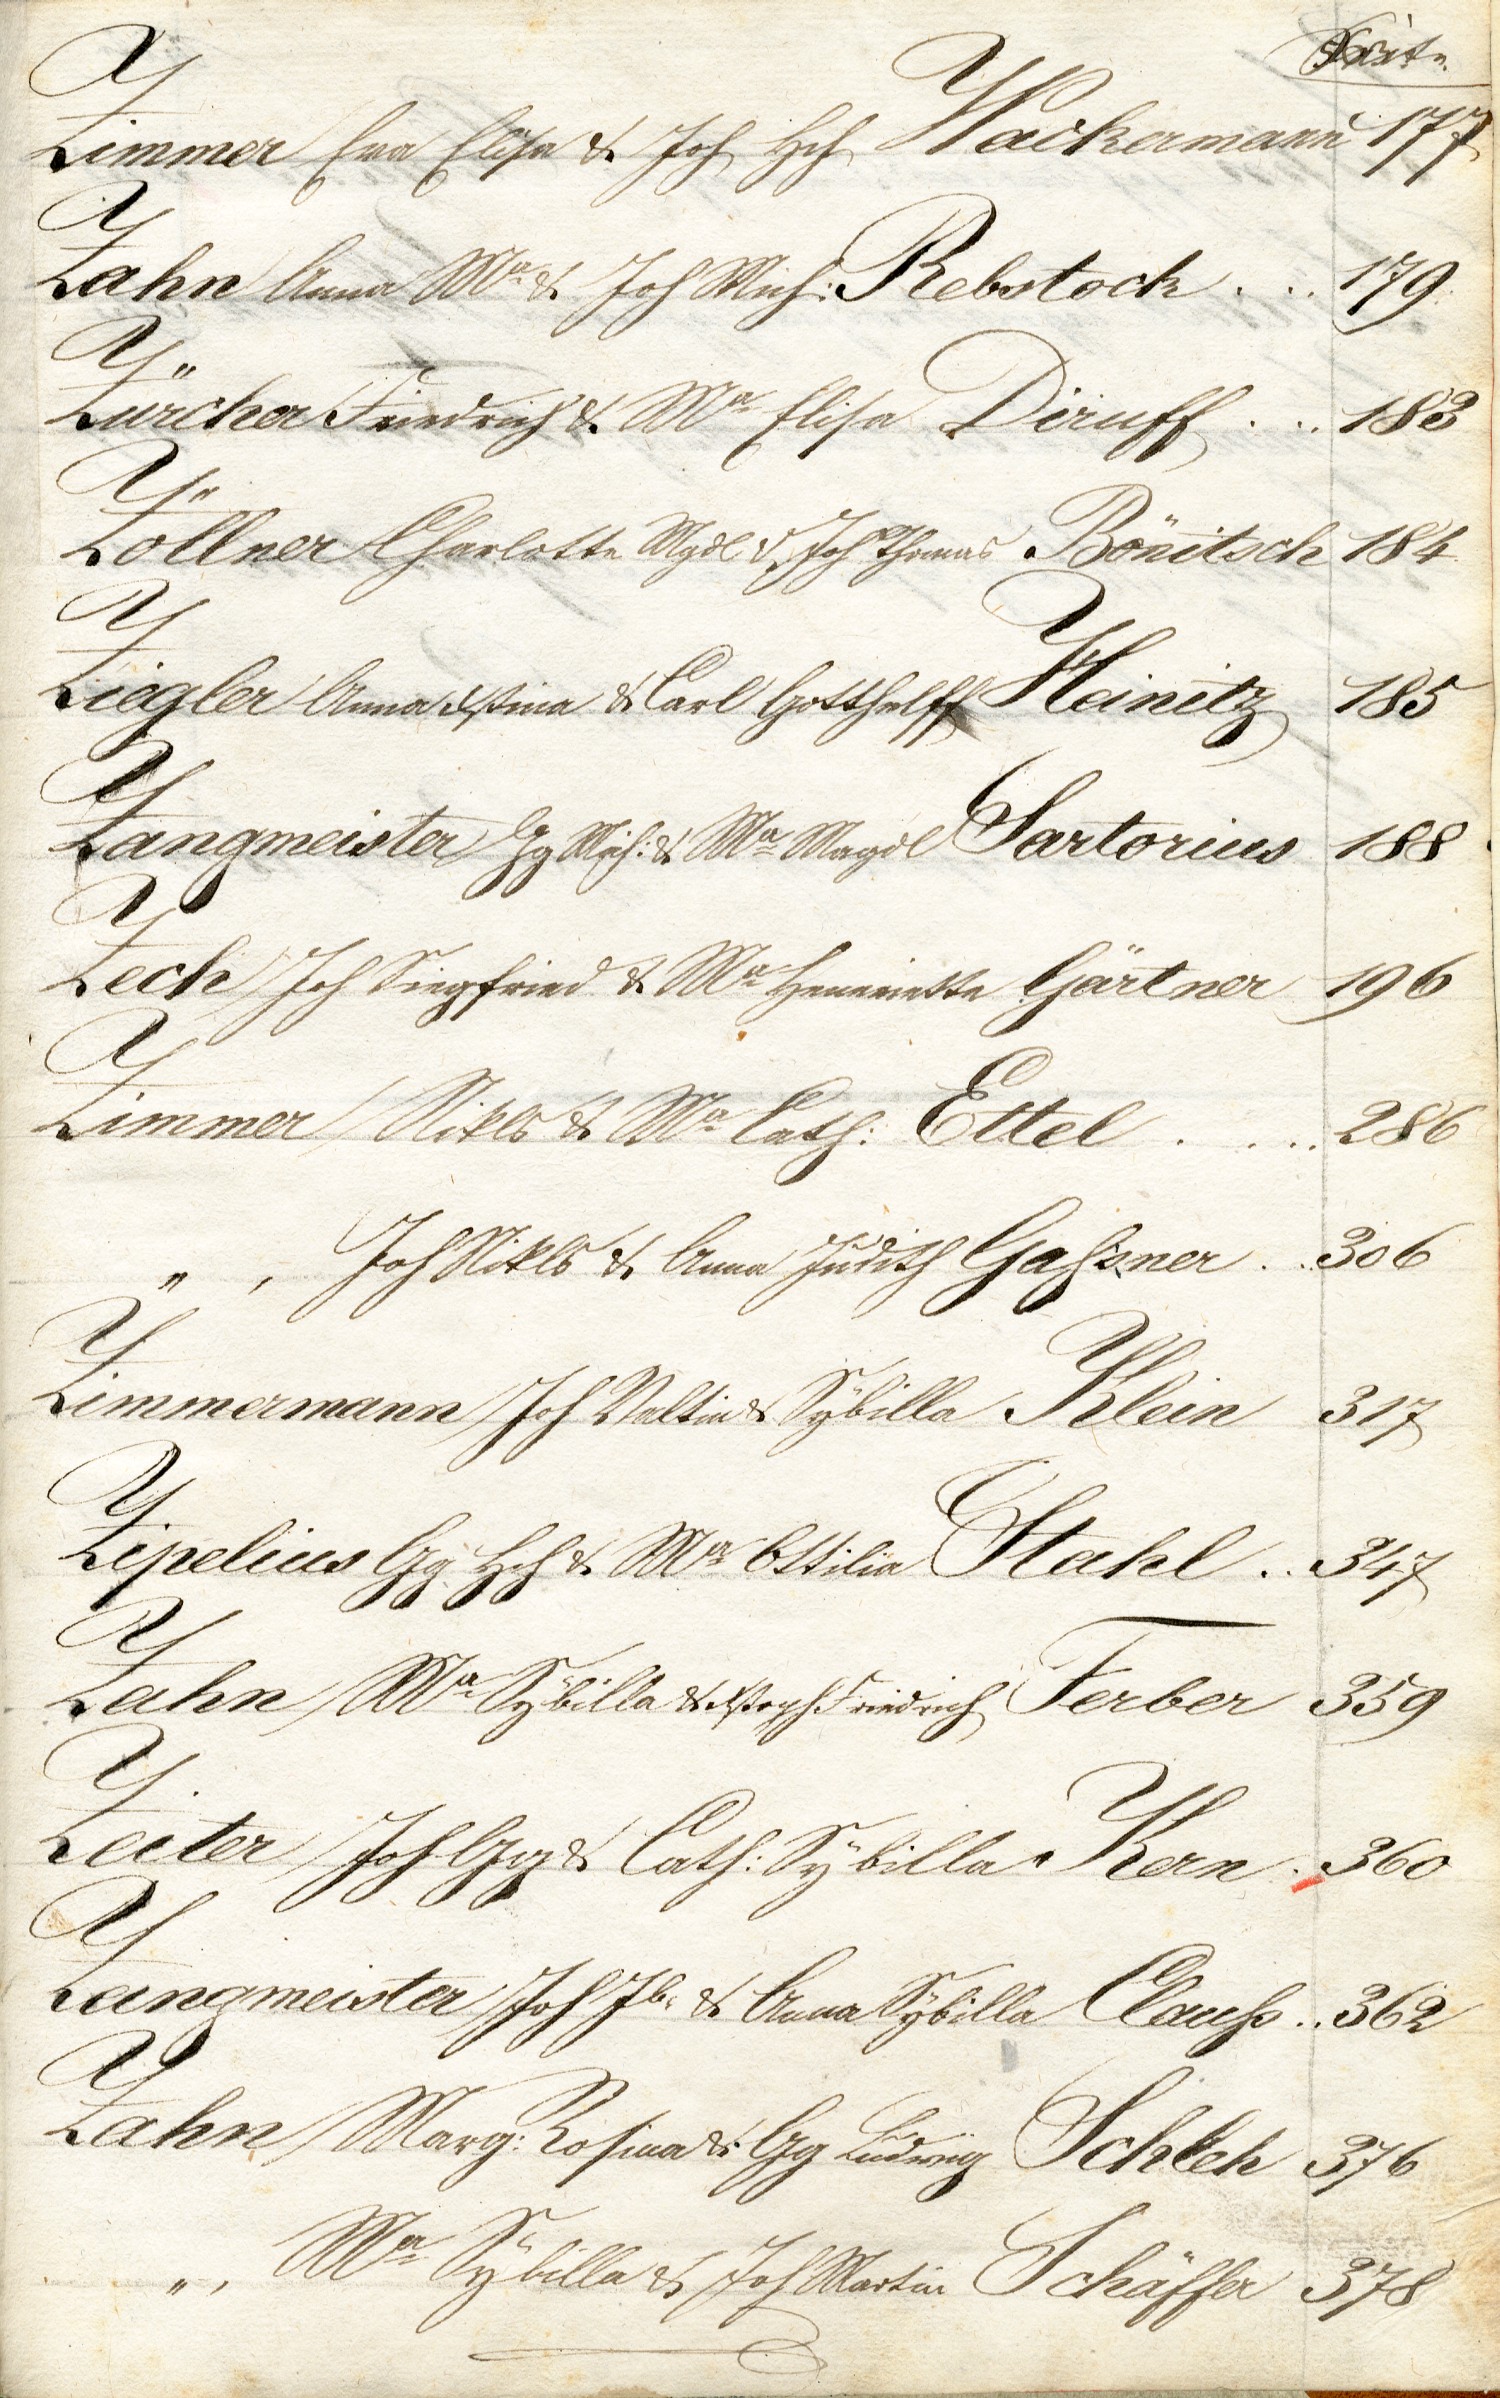 Seite
Zimmer Eva Elisa & Joh Hch Wackermann 177
Zahn Anna Ma & Joh Mich: Rebstock . .. 179
Zürcher Friedrich & Ma Elisa Diruff . .. 183
Zöllner Charlotte Mgdl & Joh Thomas Bönitsch 184
Ziegler Anna & Carl Gotthelff Heinitz 185
Zangmeister Gg Mich: & Ma Magdl Sartorius 188
Zech Joh Siegfried & Ma Henriette Gärtner 196
Zimmer Nikls & Ma Cath: Ettel . . ... 286
" , Joh Nikls & Anna Judith Gaßner . .. 306
Zimmermann Joh Valtin & Sÿbilla Klein 317
Zipelius Gg Hch & Ma Ottilia Stahl . .. 347
Zahn Ma Sÿbilla & Friedrich Ferber 359
Zeiter Joh Gg & Cath: Sÿbilla Kern . 360
Zangmeister Joh Jb. & Anna Sÿbilla Clauß .. 362
Zahn Marg: Rosina & Gg Ludwig Schleh 376
" , Ma Sÿbilla & Joh Martin Schäffer 378